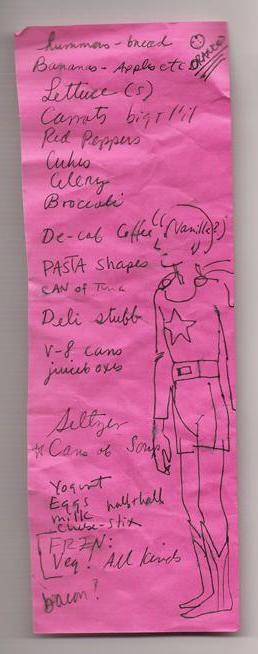 hummus - bread
Bananas - Apples etc
Lettuce (s)
Carrots big & lil
Red Peppers
Cukes
Celery
Broccoli
De-caf Coffee (Vanilla?)
PASTA shapes
CAN of Tuna
Deli stubb
V-8 cans
juice boxes
Seltzer
Cans of Soup
Yogurt
Eggs
milk half+half
cheese-stix
FRZN:
Veg! All kinds
bacon?